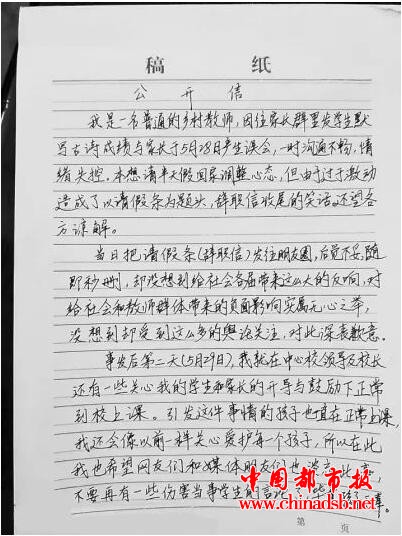 稿 纸
公开信
我是一名普通的乡村教师，因往家长群里发学生默
写古诗成绩与家长于5月28日产生误会，一时沟通不畅，情
绪失控。本想请半天假回家调整心态，但由于过于激动
造成了以请假条为题头，辞职信收尾的笑话，还望各
方谅解。
当日把请假条（辞职信）发往朋友圈，后觉不妥，随
即秒删，却没想到给社会各届带来这么大的反响，对
给社会和教师群体带来的负面影响实属无心之举，
没想到却受到这么多的舆论关注，对此深表歉意。
事发后第二天（5月29日），我就在中心校领导及校长
还有一些关心我的学生和家长的开导与鼓励下正常
到校上课。引发这件事情的孩子也直在正常上课，
我还会像以前一样关心爱护每个孩子，所以在此
我也希望网友们和媒体朋友们也淡忘此事，
不要再有一些伤害当事学生的言论
中国都市报
www.chinadsb.net
第 页